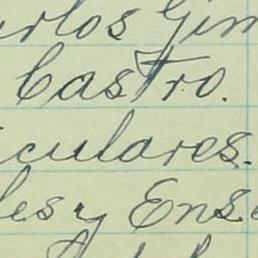 rlos Gim
Castro.
iculares.
les y Ense